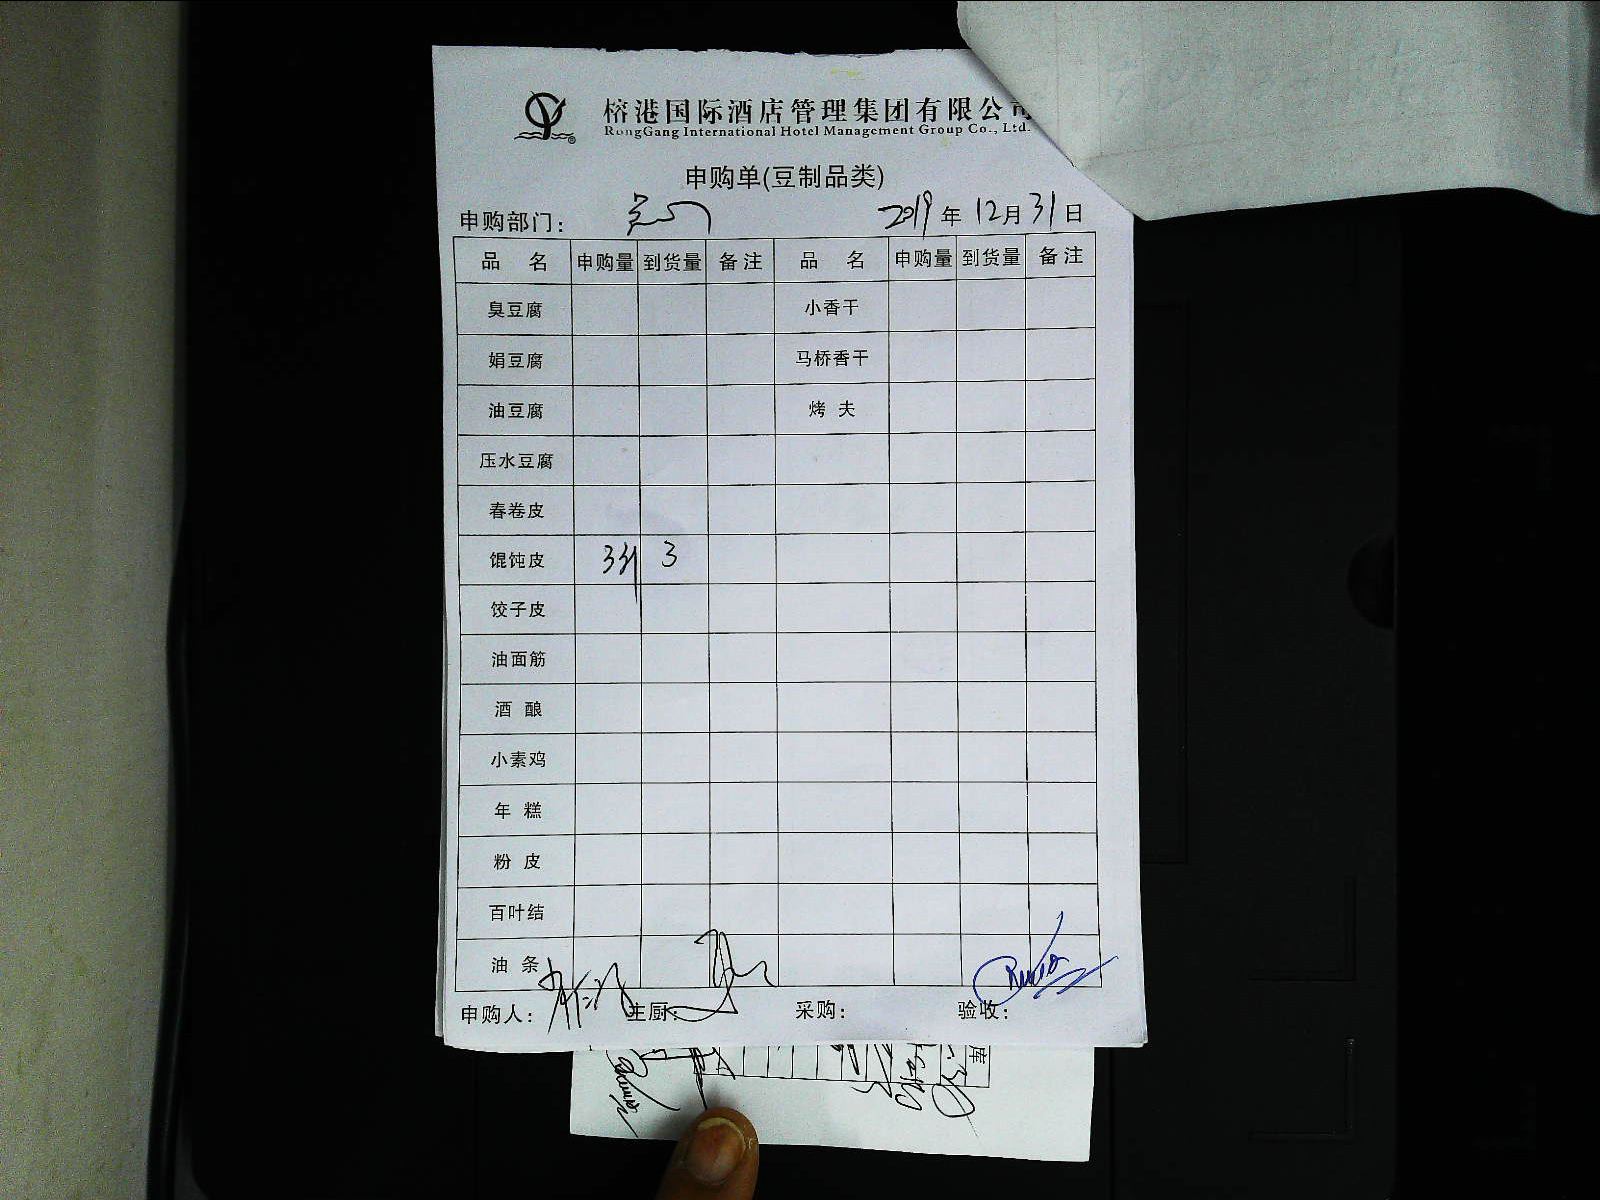 榕港国际酒店管理集团有限公司
RongGang International Hotel Management Group Co., Ltd.
申购单(豆制品类)
申购部门： 2019年12月31日
品 名 申购量 到货量 备注 品 名 申购量 到货量 备注
臭豆腐 小香干
娟豆腐 马桥香干
油豆腐 烤 夫
压水豆腐
春卷皮
馄饨皮 3斤 3
饺子皮
油面筋
酒 酿
小素鸡
年 糕
粉 皮
百叶结
油 条
申购人： 主厨： 采购： 验收：
库